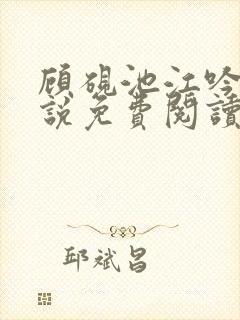 顾砚池江吟
說免費閱讀
邱斌昌